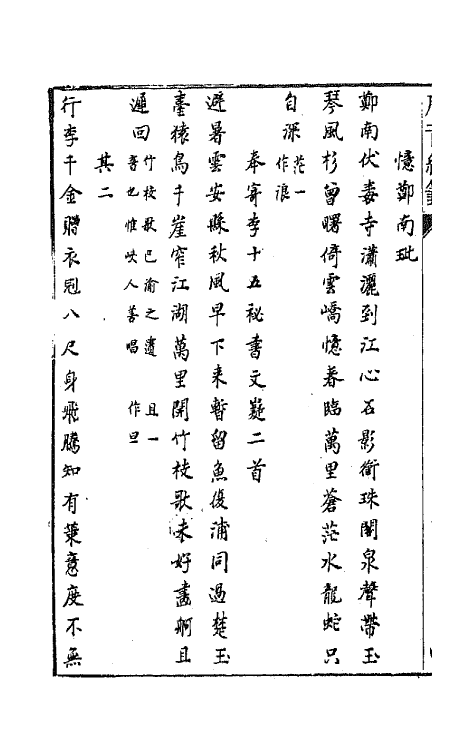 憶鄭南玭
鄭南伏毒寺瀟灑到江心石影銜珠閣泉聲帶玉
琴風杉曾曙倚雲嶠憶春臨萬里蒼茫水龍蛇只
自深茫一作浪
奉寄李十五祕書文嶷二首
避暑雲安縣秋風早下來暫留魚復浦同過楚玉
臺猿鳥千崖窄江湖萬里開竹枝歌未好畫舸且
遲回竹枝歌巴渝之遺音也惟峽人善唱 且一作旦
其二
行李千金贈衣冠八尺身飛騰知有策意度不無